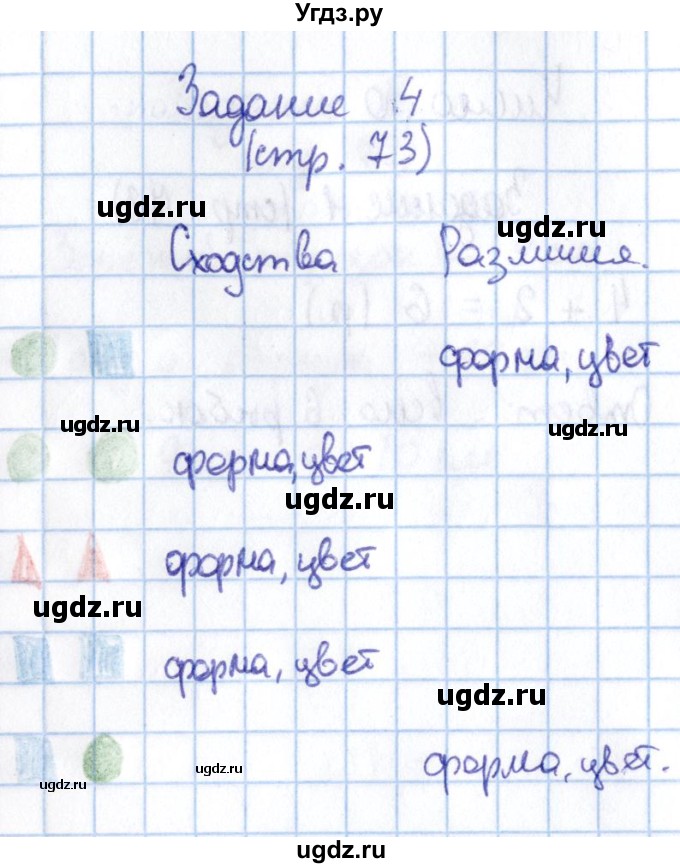 Угдз.ру
Задание 4
(стр. 73)
ugdz.ru
ugdz.ru
Сходства Различия.
форма, цвет
ugdz.ru
ugdz.ru
форма, цвет
ugdz.ru
форма, цвет
ugdz.ru
форма, цвет
ugdz.ru
форма, цвет.
ugdz.ru
ugdz.ru
ugdz.ru